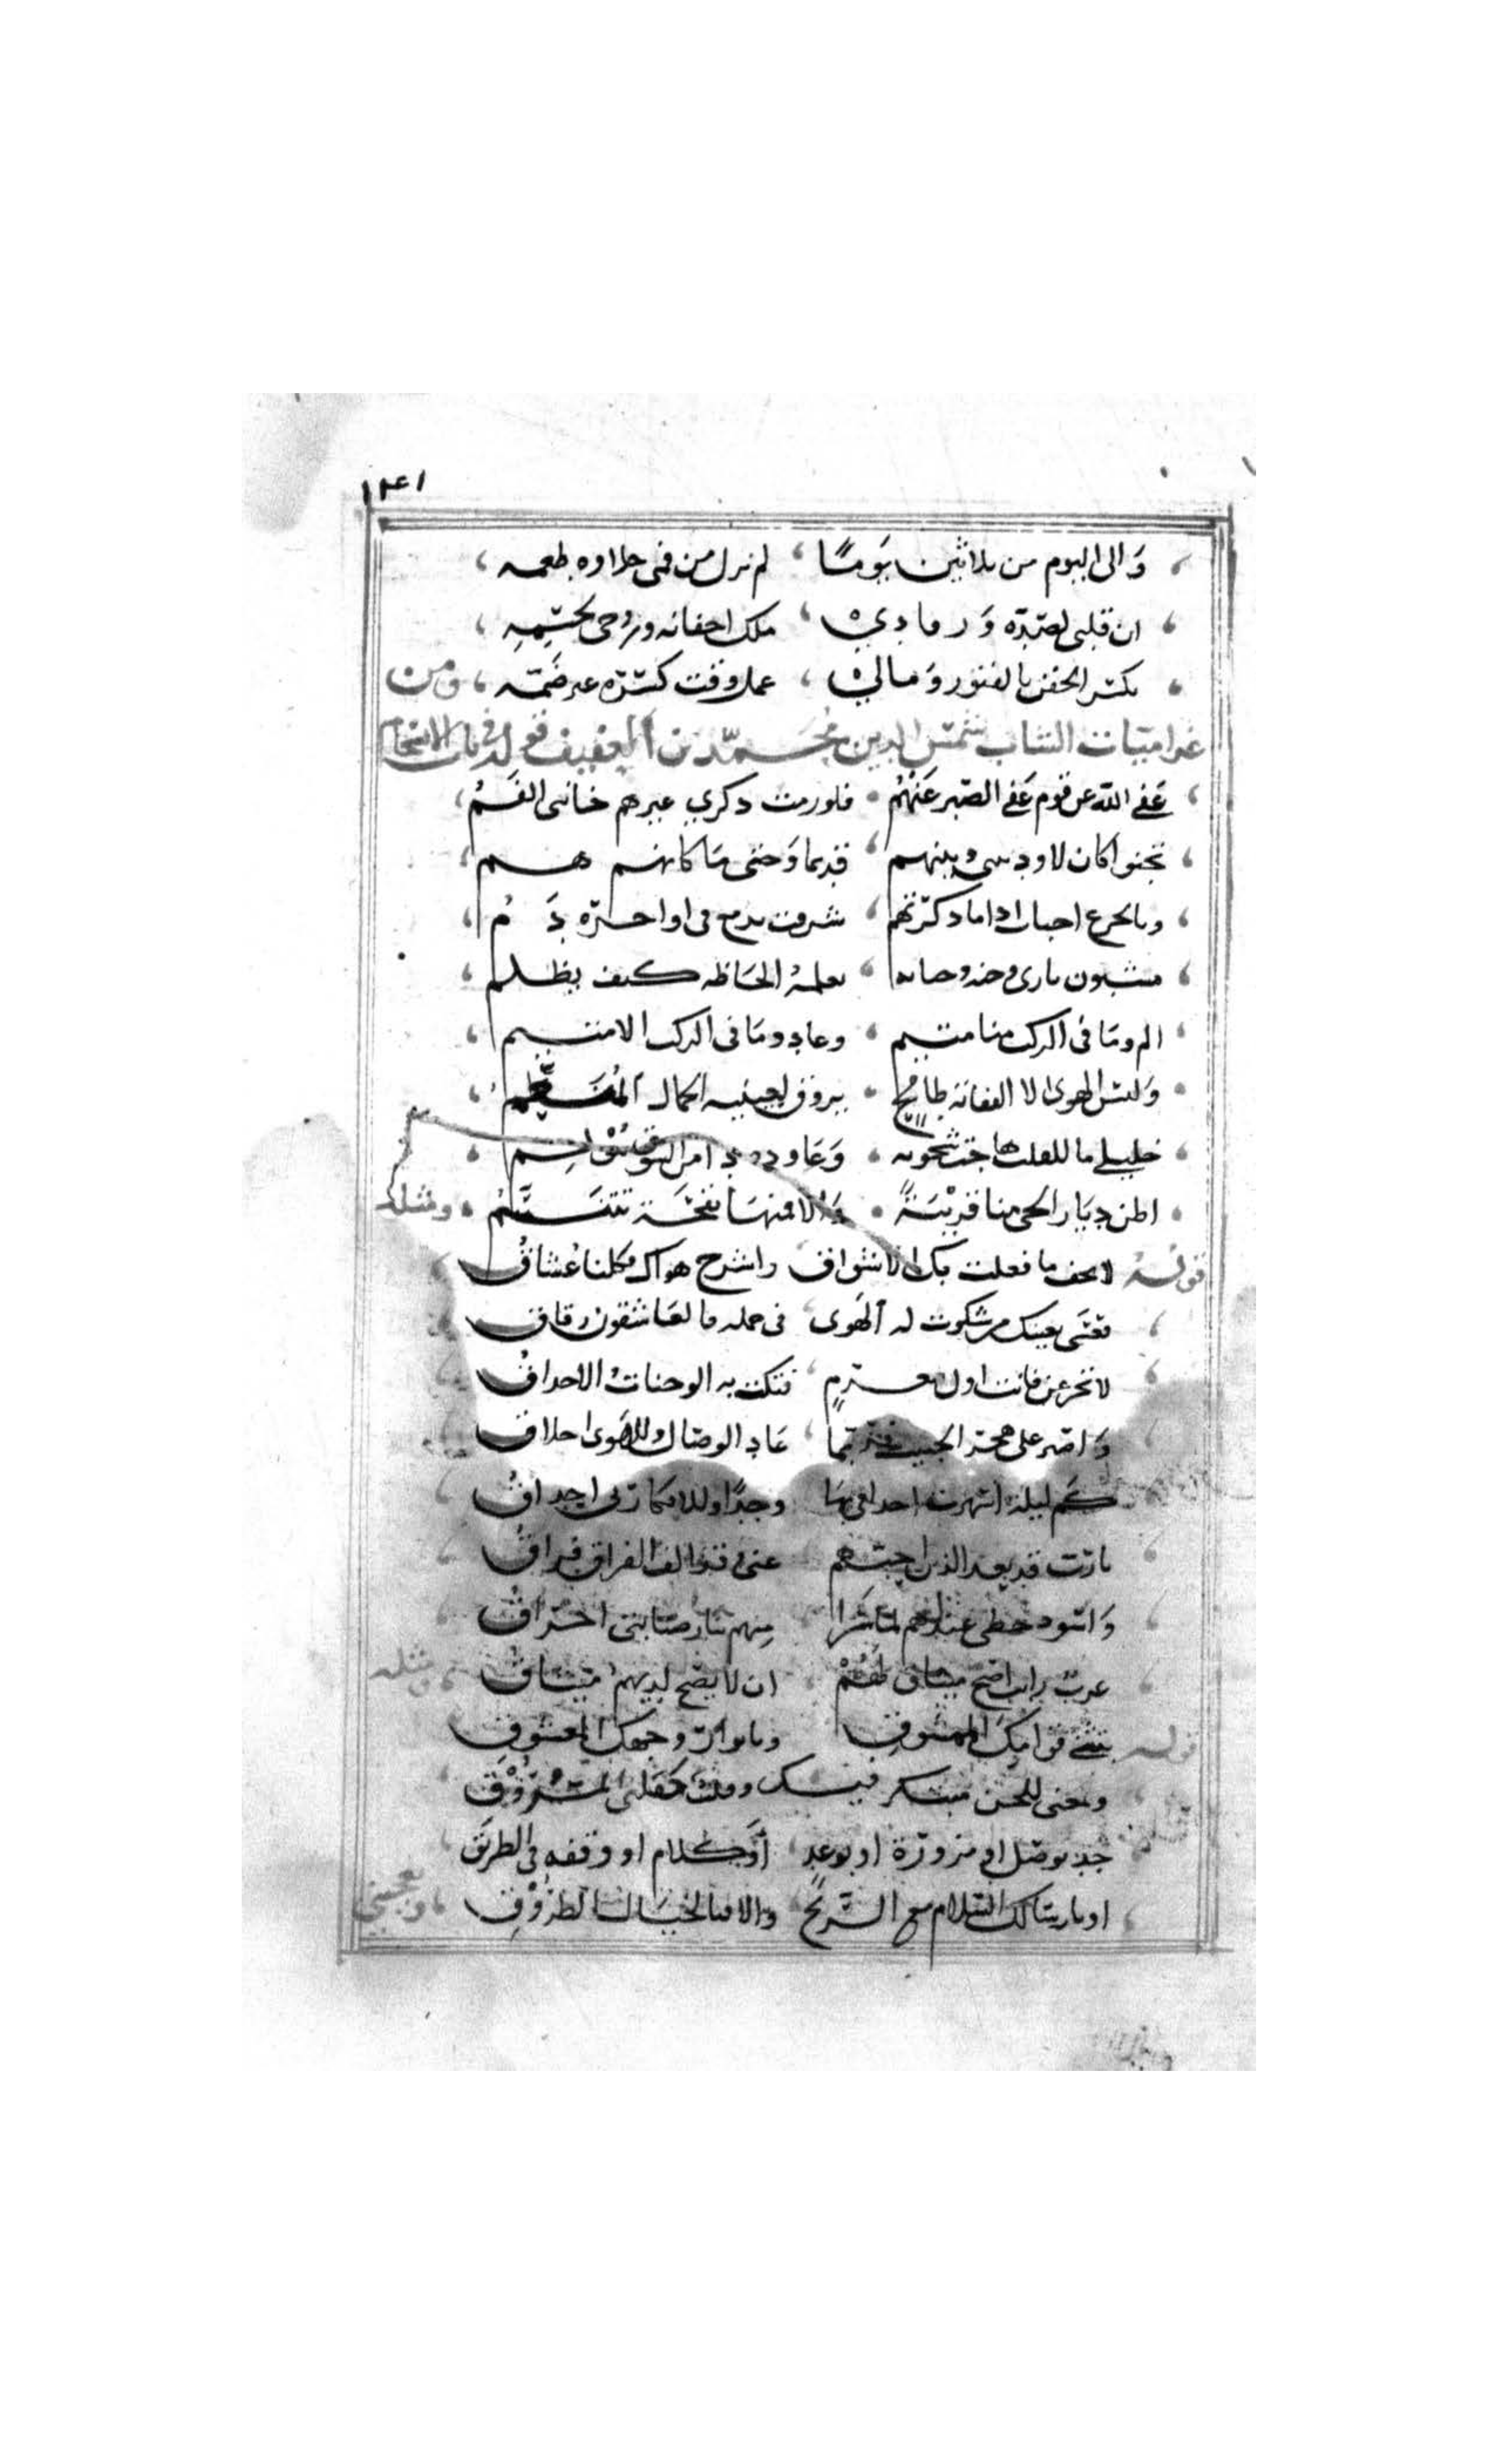 ١٢٤١
والى اليوم من ثلاثين يومًا لم نزل من فمى حلاوه طعمه
ان قلبى لصدّه ورقادي ملك اجفانه وروحى لجسمه
بكسر الجفن بالفتور ومالي عمل وقت كسره غير ضمّه ومن
غراميات الشاب شمس الدين محمّد بن العفيف قوله فى باب الانسجام
عَفى الله عن قوم عَفى الصبر عَنهُم فلو رمت ذكري غيرهم خاننى الفَمُ
تجنوا كان لا ودّ بينى وبينهم قديما وحتى ما كانهم هم
وبالجزع احباب اذا ما ذكرتهم شرقت بدمع فى اواخره دَمُ
مشبون نارى وجنه وجنايه تعلمهُ الحاظه كيف يظلم
الم وما فى الركب منا متيم وعاد وما فى الركب الا متيم
وليس الهوى الا التفاتة طامح يروق لعينيه الجمال المنعّم
خليلي ما للقلب هاجت شجونه وعاوده من الشوق مؤلم
اظن ديار الحى منا قريبَةً والا فمنها نفحة تتنسَّمُ ومثله
قولهُ لا تخف ما فعلت بك الاشواق واشرح هواك فكلنا عشاقُ
فعسى يعينك من شكوت له الهَوى فى حمله فالعاشقون رفاق
لا تجزعن فلست اول مغرم فتكت به الوجنات والاحداقُ
واصبر على هجر الحبيب فربّما عاد الوصال وللهَوى اخلاق
كم ليلة اسهرت احداقى بها وجدًا وللافكار بى احداقُ
يا ربّ قد بعد الذين احبّهم عنى وقد الف الفراق فراقُ
واسود حظى عندهم لمّا سَرا منهم بنار صبابتى احراقُ
عربٌ رايت اصح ميثاق لهُمْ ان لا يصح لديهمُ ميثاقُ ومثله
قوله بتثنى قوامِكَ الممشوقِ وبانوار وجهك المعشوقِ
ومعنى للحسن مبتكر فيك وقلب كقلبى المسروقِ
جُد بوصل او بزورة او بوعدٍ أو كلام او وقفه فى الطريق
او بارسالك السلام مع الريح والا فبالخيال الطروْقِ ويعجبنى